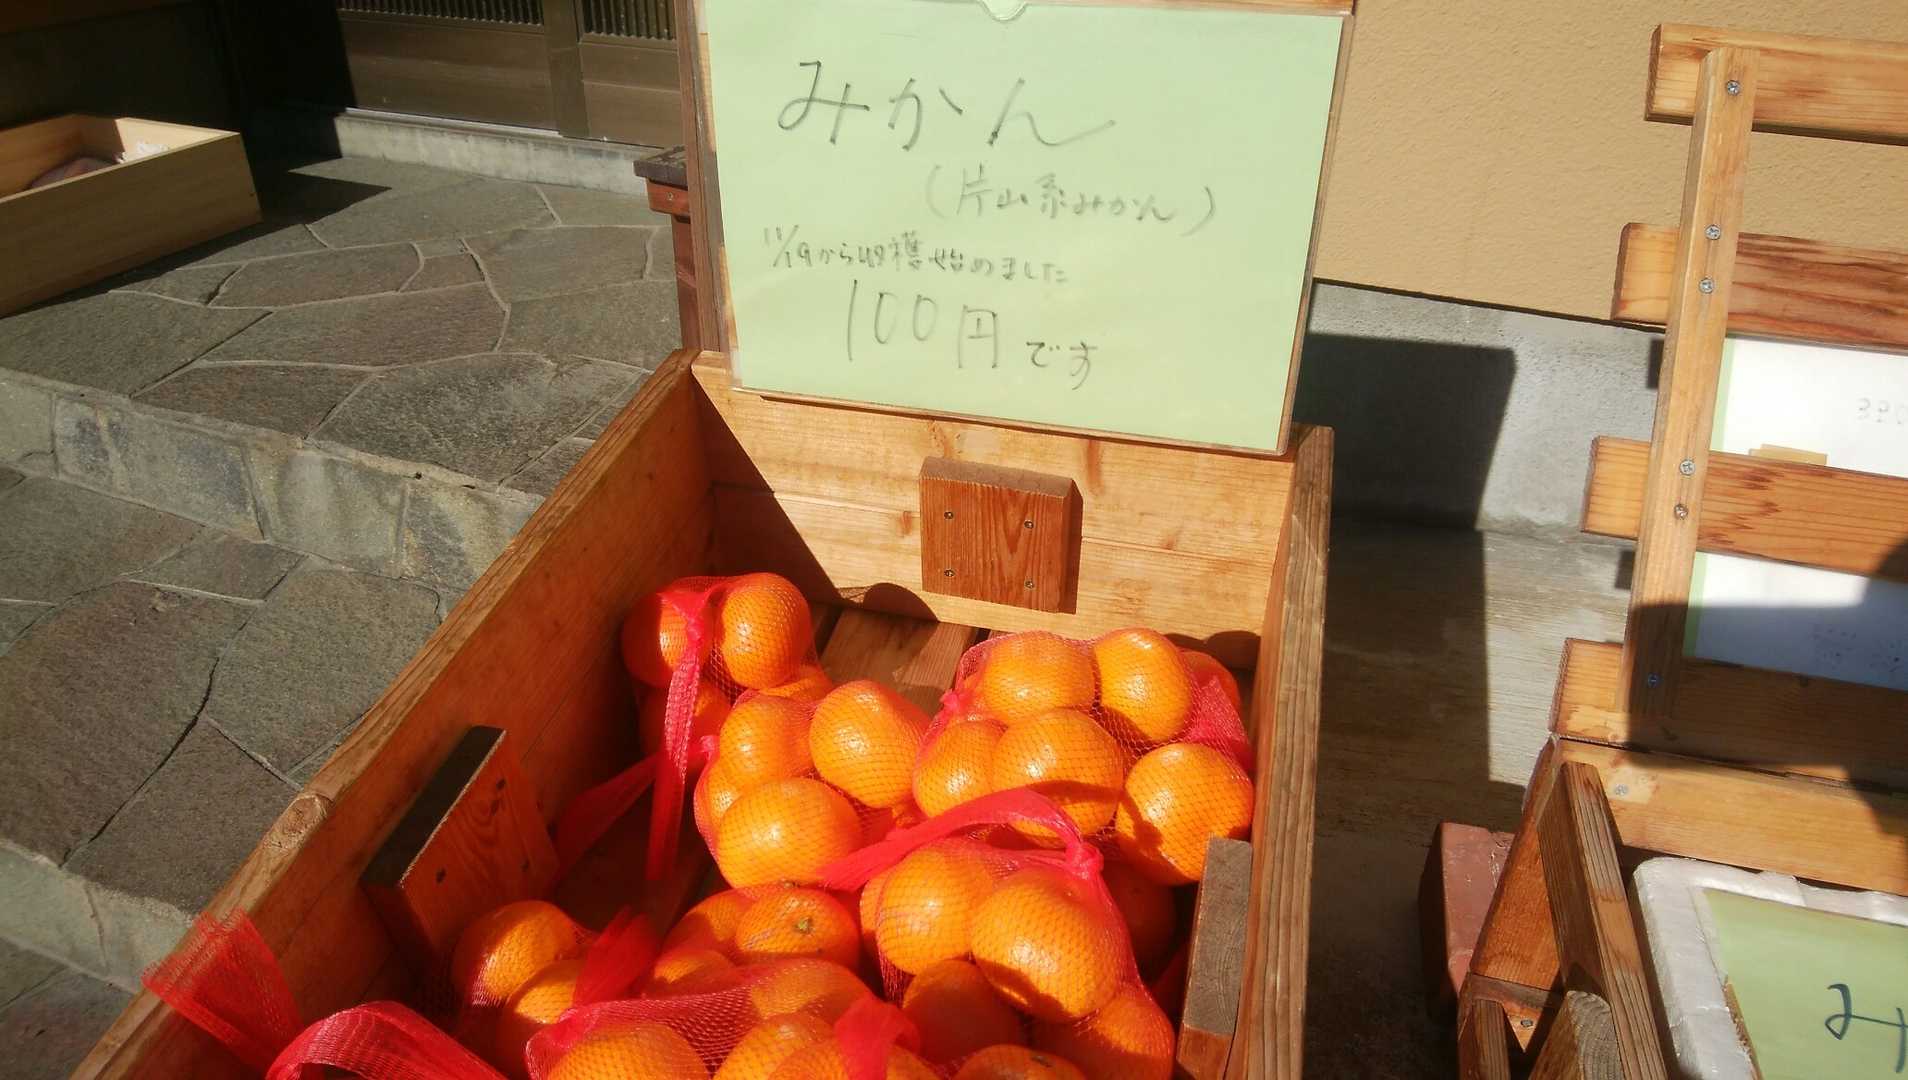 みかん
(片山系みかん)
11/19から収穫始めました
100円です
み